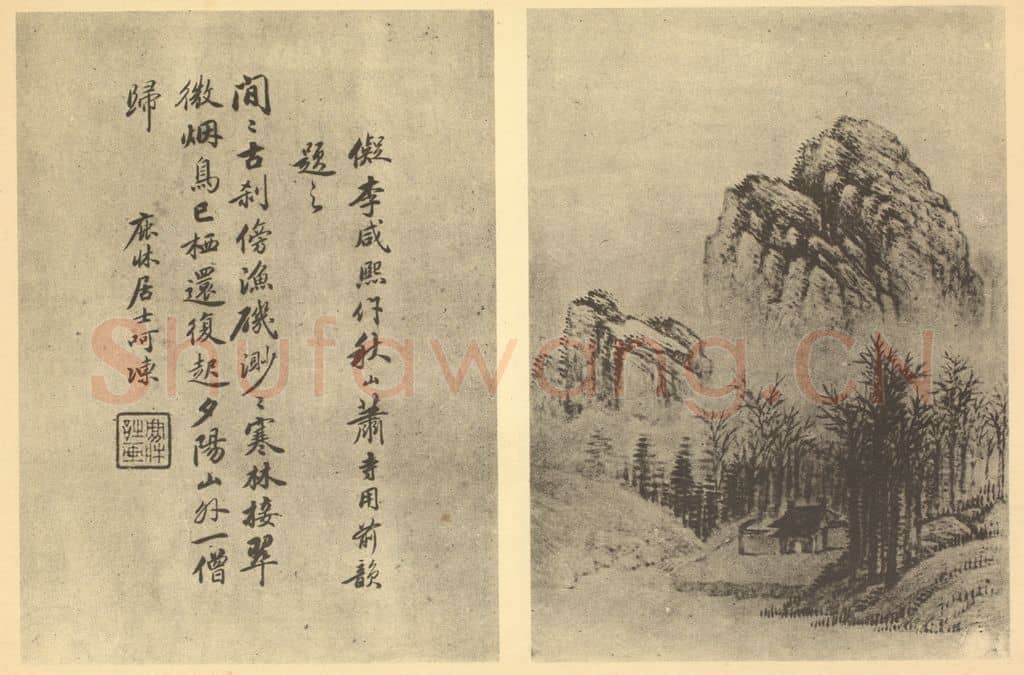 儗李咸熙作秋山蕭寺用前韻
題之
間〻古刹傍漁磯渺〻寒林接翠
微烟鳥已栖還復起夕陽山外一僧
歸
鹿牀居士呵凍
Shufawang.CN